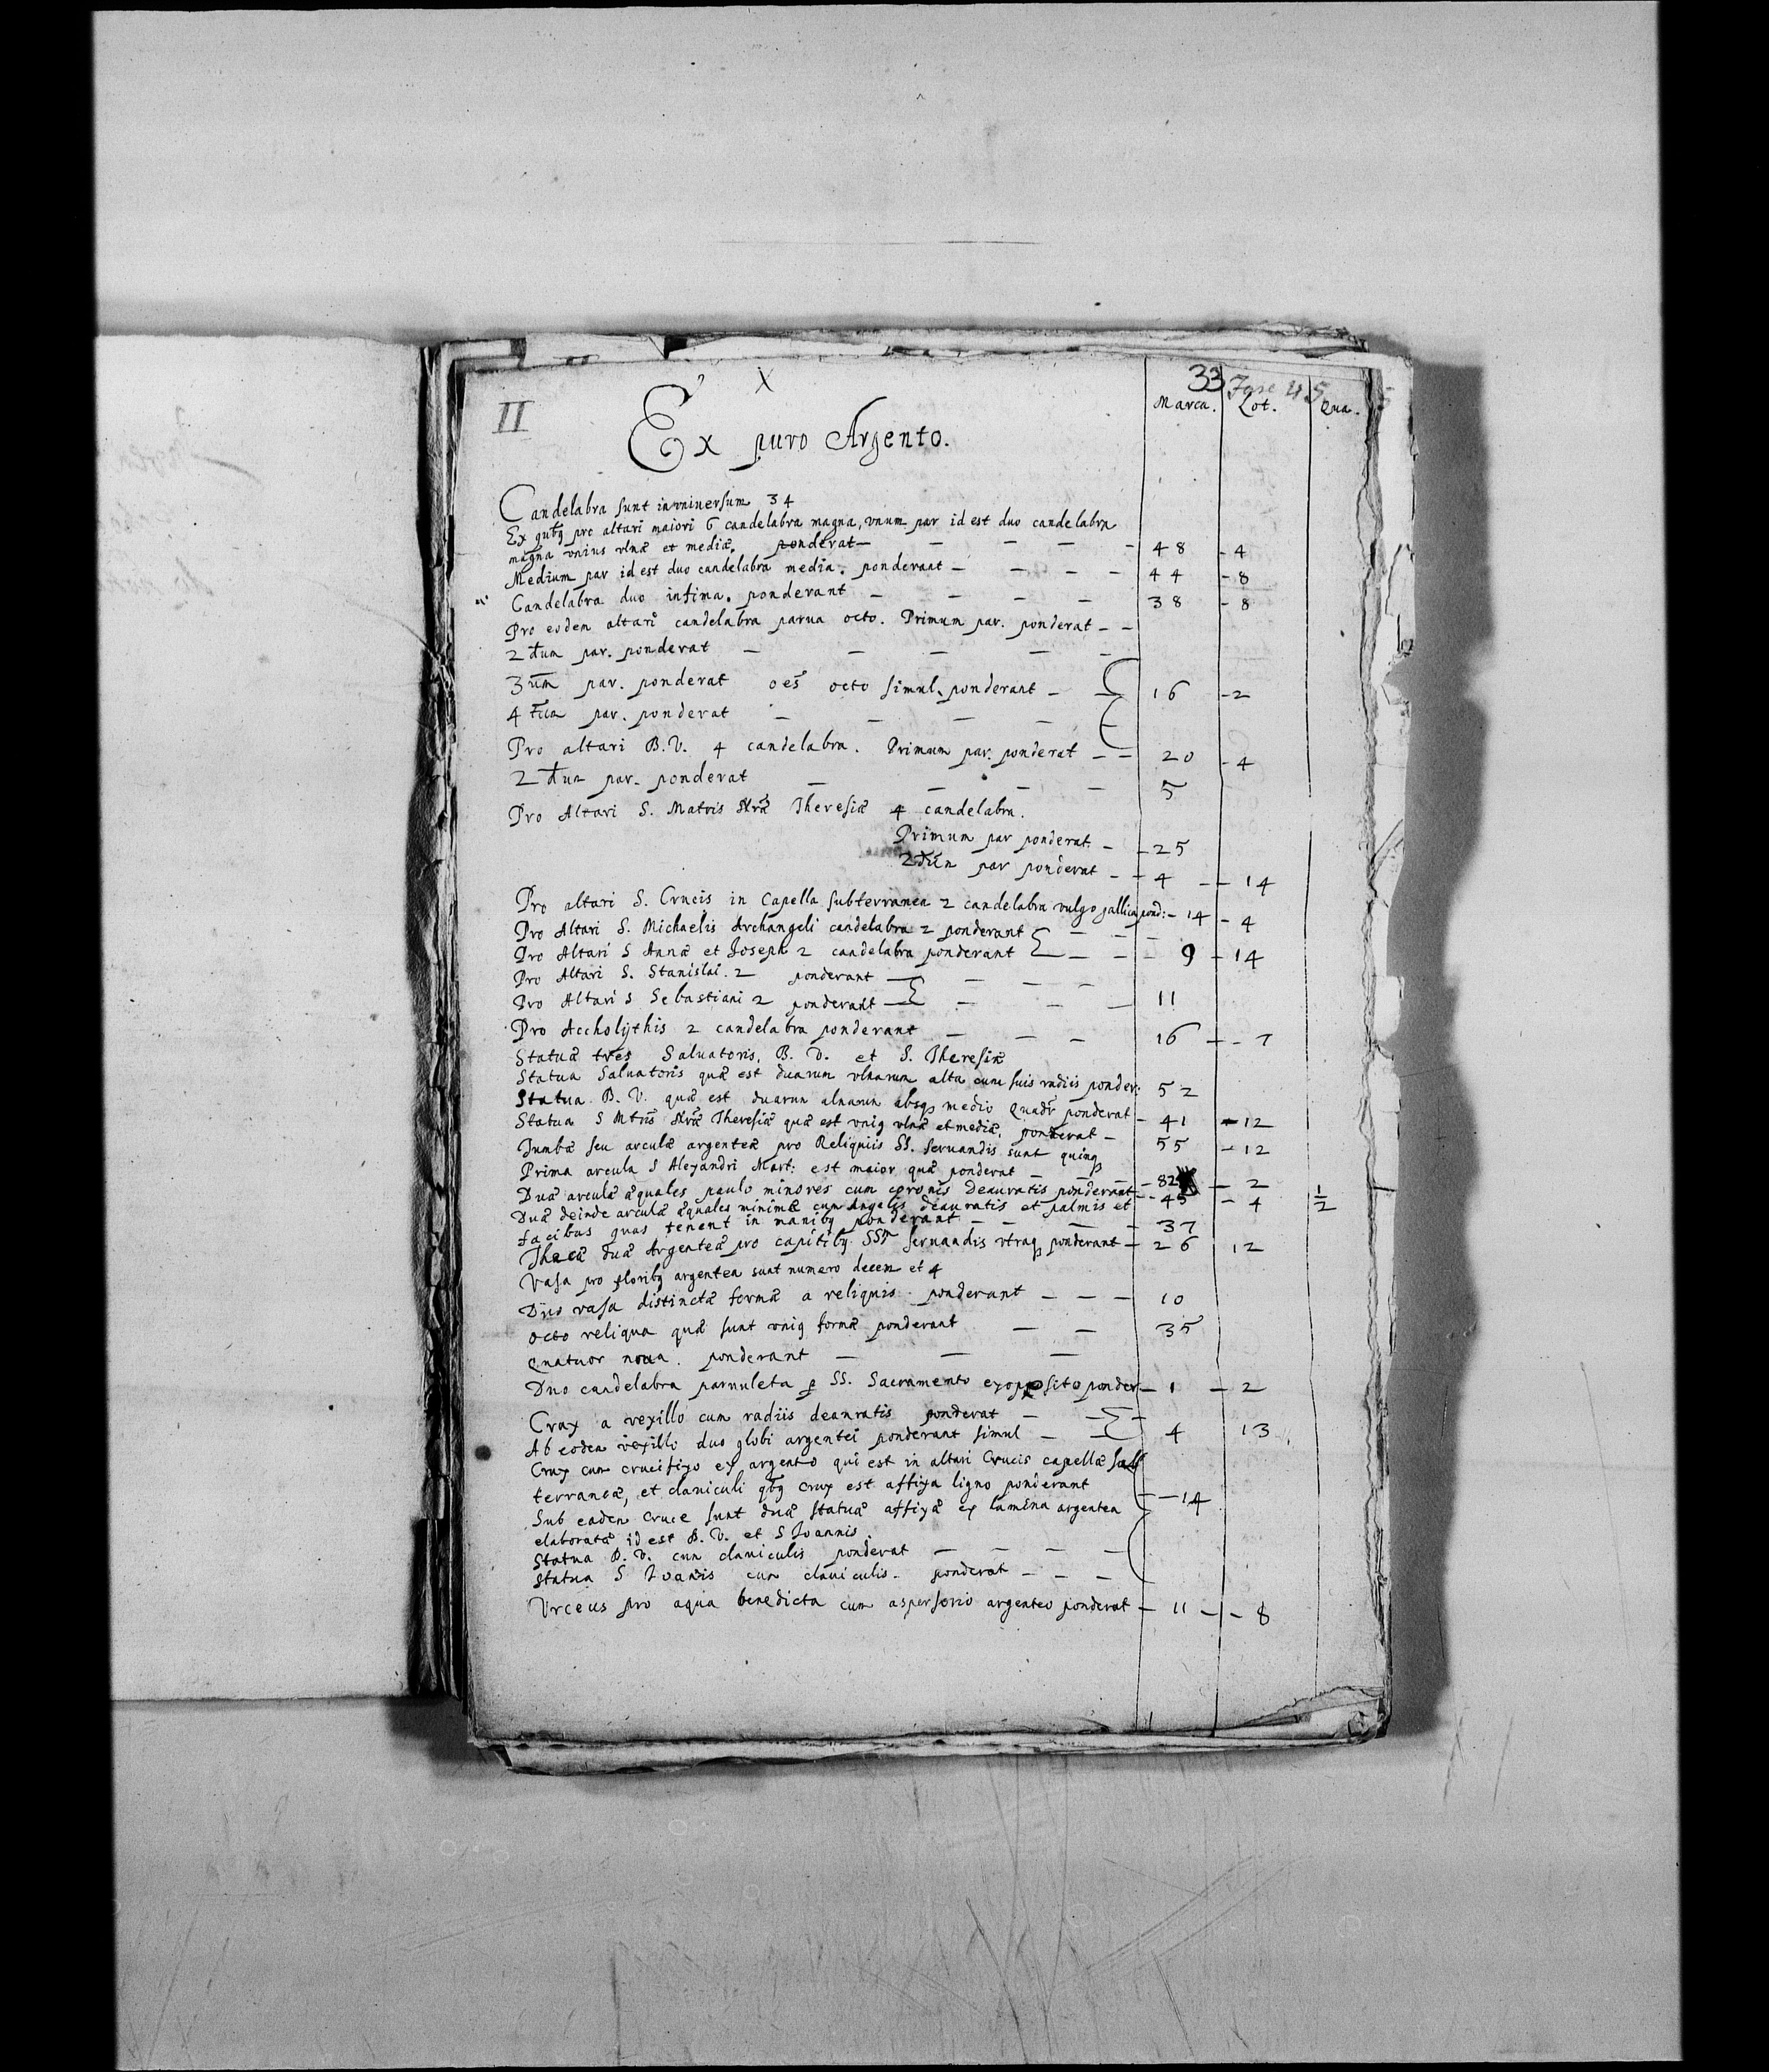 X
33 Fasc 45
II
Marca. Lot. Qua.
Ex puro Argento.
Candelabra sunt in vniuersum 34
Ex qutbq pro altari maiori 6 candelabra magna, vnum par id est duo candelabra
magna vnius vlnæ et mediæ. ponderat — — — — - 48 - 4
Medium par id est duo candelabra media. ponderant — — — - 44 - 8
Candelabra duo infima. ponderant — — — — 38 - 8
Pro eodem altari candelabra parua octo. Primum par. ponderat - -
2dum par. ponderat — — — — -
3um par. ponderat oes octo simul. ponderant - — 16 - 2
4tum par. ponderat — — — — -
Pro altari B.V. 4 candelabra. Primum par. ponderat - - 20 - 4
2dum par. ponderat — — — — 5
Pro Altari S. Matris Nræ Theresiæ 4 candelabra.
Primum par ponderat. - - 25
2dum par ponderat - - 4 - - 14
Pro altari S. Crucis in Capella subterranea 2 candelabra vulgo gallica pond: - 14 - 4
Pro Altari S. Michaelis Archangeli candelabra 2 ponderant — — -
Pro Altari S Annæ et Joseph 2 candelabra ponderant — — - 9 - 14
Pro Altari S. Stanislai. 2 ponderant — — — -
Pro Altari S Sebastiani 2 ponderant — — — — 11
Pro Accholythis 2 candelabra ponderant — — — 16 - - 7
Statuæ tres Saluatoris, B. V. et S. Theresiæ
Statua Saluatoris quæ est duarum vlnarum alta cum suis radiis ponder: 52
Statua B. V. quæ est duarum alnarum absq medio Quadr ponderat - 41 - 12
Statua S Mtris Nræ Theresiæ quæ est vniq vlnæ et mediæ. ponderat - 55 - 12
Tumbæ seu arculæ argenteæ pro Reliquiis SS. seruandis sunt quinq
Prima arcula S Alexandri Mart: est maior quæ ponderat — — - 82 - 2
Duæ arculæ æquales paulo minores cum coronis deauratis ponderant - 45 - 4 1/2
Duæ deinde arculæ æquales minimæ cum Angelis deauratis et palmis et
facibus quas tenent in manibq ponderant - - — - 37
Thecæ duæ Argenteæ pro capitibq SSr seruandis vtraq ponderant - 26 12
Vasa pro floribq argentea sunt numero decem et 4
Duo vasa distinctæ formæ a reliquis. ponderant - — — 10
octo reliqua quæ sunt vniq formæ ponderant — — 35
Quatuor noua. ponderant — — —
Duo candelabra paruuleta p SS. Sacramento exopposito ponder - 1 - 2
Crux a vexillo cum radiis deauratis ponderat — — -
Ab eodem vexillo duo globi argentei ponderant simul — — 4 13
Crux cum crucifixo ex argento qui est in altari Crucis capellæ sub
terraneæ, et clauiculi qbq crux est affixa ligno ponderant - 14
Sub eadem Cruce sunt duæ statuæ affixæ ex lamina argentea
elaboratæ id est B. V. et S Ioannis.
Statua B. V. cum clauiculis ponderat — — — -
Statua S Ioanis cum clauiculis. ponderat - - -
Vrceus pro aqua benedicta cum aspersorio argenteo ponderat - 11 - - 8